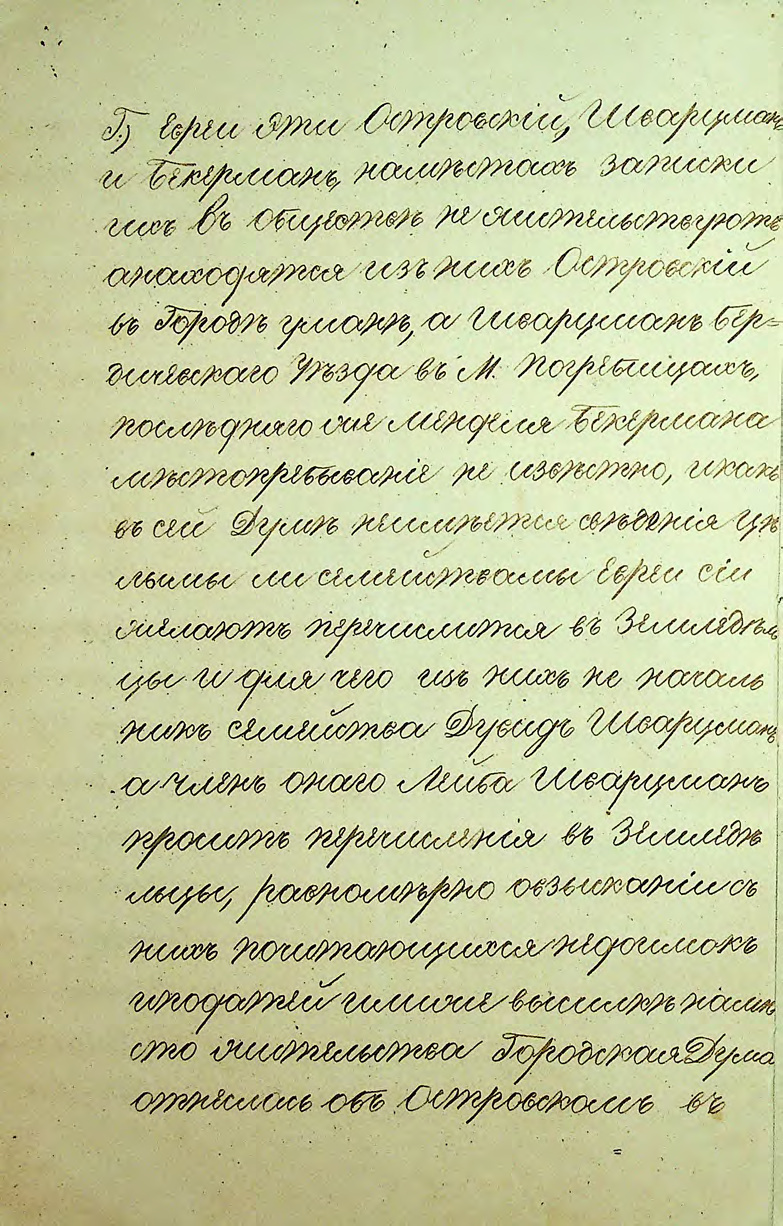 Г.) Евреи эти Островскій, Шварцманъ
и Бекерманъ, намѣстахъ записки
ихъ въ обществѣ не жительствуютъ
анаходятся изъ нихъ Островскій
въ Городѣ уманѣ, а Шварцманъ Бер=
дичевскаго Уѣзда въ М. Погребищахъ,
послѣдняго же Менделя Бекермана
мѣстопребываніе не извѣстно, икакъ
въ сей Думѣ неимѣется свѣденія цѣ
лымы ли семействамы Евреи сіи
желаютъ перечислится въ Земледѣль
цы и для чего изъ нихъ не началь
никъ семейства Дувидъ Шварцманъ
а членъ онаго Лейба Шварцманъ
проситъ перечисленія въ Земледѣ
льцы, равномѣрно овзысканіи съ
нихъ почитающихся недоимокъ
иподатей имиже высилкѣ намѣ
сто жительства Городская Дума
отнеслась объ Островскомъ въ